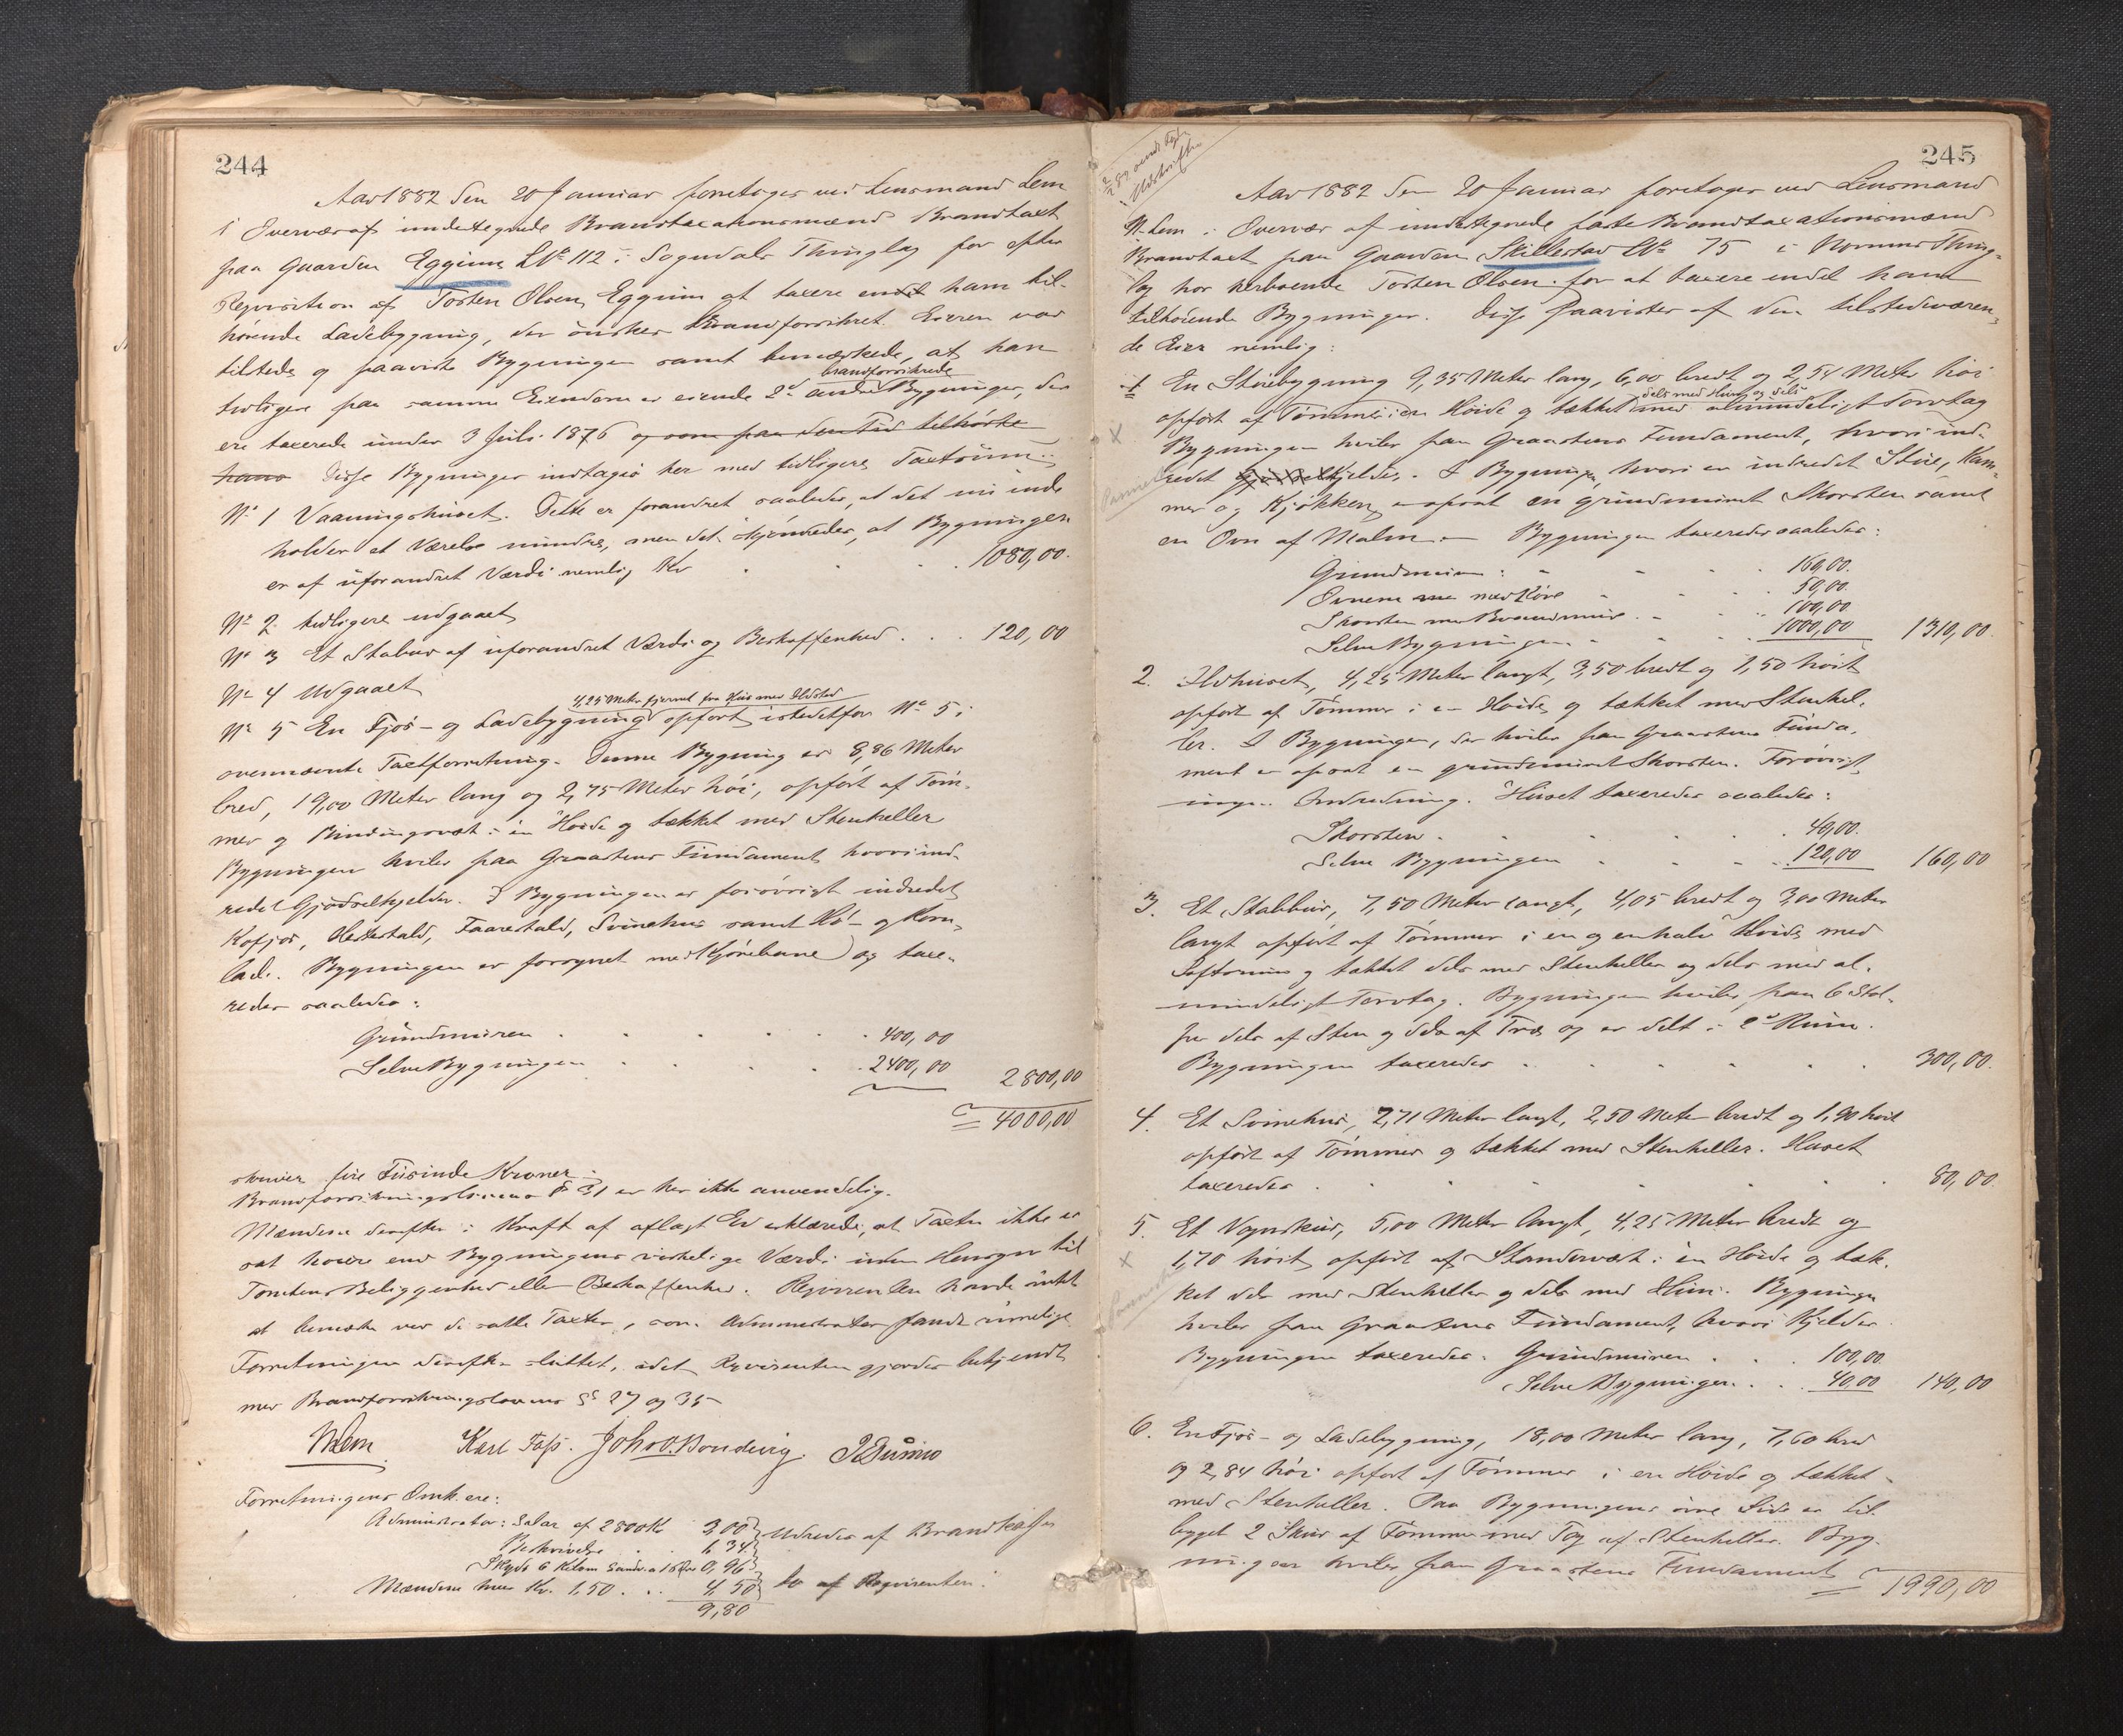 244
Aar 1882 den 20 Januar foretoges ved Lensmand Lem
i Overvær af undertegnede Brandtaxationsmænd Brandtaxt
paa Gaarden Eggum LNo 112 i Sogndals Thinglag for efter
Requisition af Tosten Olsen Eggum at taxere endel ham til-
hørende Ladebygning, der ønskes Brandforsikret. Eieren var
tilstede og paaviste Bygningen samt bemærkede, at han
brandforsikrede
tidligere paa samme Eiendom er eiende 2de andre Bygninger, der
ere taxerede under 3 Juli 1876 og som paa den Tid tilhørte
hans Disse Bygninger indtages her med tidligere Taxtsum:
No 1 Vaaningshuset. Dette er forandret saaledes, at det nu inde
holder et Værelse mindre, men det skjønnedes, at Bygningen
er af uforandret Værdi nemlig Kr . . . 1080,00.
No 2 tidligere udgaaet
No 3 Et Stabur af uforandret Værdi og Beskaffenhed . . . 120,00
No 4 Udgaaet
4,25 Meter fjernet fra Hus med Ildsted
No 5 En Fjøs- og Ladebygning opført istedetfor No 5 i
ovennævnte Taxtforretning. Denne Bygning er 8,86 Meter
bred, 19,00 Meter lang og 2,75 Meter høi, opført af Tøm-
mer og Bindingsværk i en Høide og tækket med Stenheller
Bygningen hviler paa Graastens Fundament hvori ind-
redet Gjødselkjelder. I Bygningen er forøvrigt indredet
Kofjøs, Hestestald, Faarestald, Svinehus samt Hø- og Korn-
lade. Bygningen er forsynet med Kjørebane og taxe-
redes saaledes:
Grundmuren . . . . . 400,00
Selve Bygningen . . . . 2400,00 2800,00
= 4000,00
skriver fire Tusinde Kroner.
Brandforsikringslovens § 31 er her ikke anvendelig.
Mændene derefter i Kraft af aflagt Ed erklærede, at Taxten ikke er
sat høiere end Bygningens virkelige Værdi uden Hensyn til
Tomtens Beliggenhed eller Beskaffenhed. Requirenten havde intet
at bemærke ved de satte Taxter, som Administrator fandt rimelige
Forretningen derefter sluttet, idet Requirenten gjordes bekjendt
med Brandforsikringslovens §§ 27 og 35
MLem Karl Foss. Joh. O. Bondevig.
Forretningens Omk. ere:
Administrator: Salær af 2800 Kr 3,00 } Udredes af Brandkassen
Beskrivelse . . 1,34
Skyds 6 Kilom 0,96
Mændene hver Kr. 1,50 . . . 4,50 } do af Requirenten.
9,80
245
Aar 1882 den 20 Januar foretoges ved Lensmand
M. Lem i Overvær af undertegnede faste Brandtaxationsmænd
Brandtaxt paa Gaarden Skillestad LNo 75 i Thing-
lag hos derboende Tosten Olsen for at taxere endel ham
tilhørende Bygninger. Disse paavistes af den tilstedeværen-
de Eier nemlig:
1 En Stuebygning 9,35 Meter lang, 6,00 bredt og 2,54 Meter høi
dels med Heller og dels
opført af Tømmer i en Høide og tækket med almindeligt Torvtag
Bygningen hviler paa Graastens Fundament, hvori ind-
redet Kjelder. I Bygningen, hvori er indredet Stue, Kam-
mer og Kjøkken, er opsat en grundmuret Skorsten samt
en Ovn af Malm. Bygningen taxeredes saaledes:
Grundmuren: . . . . 160,00.
Ovnene med Rør . . . . 50,00.
Skorsten med Brandmur . . . 100,00
Selve Bygningen . . . . 1000,00 1310,00.
2. Ildhuset, 4,25 Meter langt, 3,50 bredt og 1,50 høit
opført af Tømmer i en Høide og tækket med Stenhel-
ler. I Bygningen, der hviler paa Graastens Funda-
ment er opsat en grundmuret Skorsten. Forøvrigt
ingen Indredning. Huset taxeredes saaledes:
Skorsten . . . . . 40,00.
Selve Bygningen . . . . 120,00 160,00
3. Et Stabbur, 7,50 Meter langt, 4,05 bredt og 3,00 Meter
langt opført af Tømmer i en og enhalv Høide med
Loftsrum og tækket dels med Stenheller og dels med al-
mindeligt Torvtag. Bygningen hviler paa 6 Stol-
per dels af Sten og dels af Træ og er delt i 2de Rum.
Bygningen taxeredes . . . . . . 300,00.
4. Et Svinehus, 2,71 Meter langt, 2,50 Meter bredt og 1,90 høit
opført af Tømmer og tækket med Stenheller. Huset
taxeredes . . . . . . 80,00.
5. Et Vognskur, 5,00 Meter langt, 4,25 Meter bredt og
1,70 høit opført af Standerværk i en Høide og tæk-
ket dels med Stenheller og dels med Hun. Bygningen
hviler paa Graastens Fundament, hvori Kjelder
Bygningen taxeredes. Grundmuren . . . 100,00.
Selve Bygningen . . . 40,00 140,00
6. En Fjøs- og Ladebygning, 18,00 Meter lang, 7,60 bred
og 2,84 høi opført af Tømmer i en Høide og tækket
med Stenheller. Paa Bygningens øvre Side er til-
bygget 2 Skur af Tømmer med Tag af Stenheller. Byg-
ningen hviler paa Graastens Fundament
= 1990,00